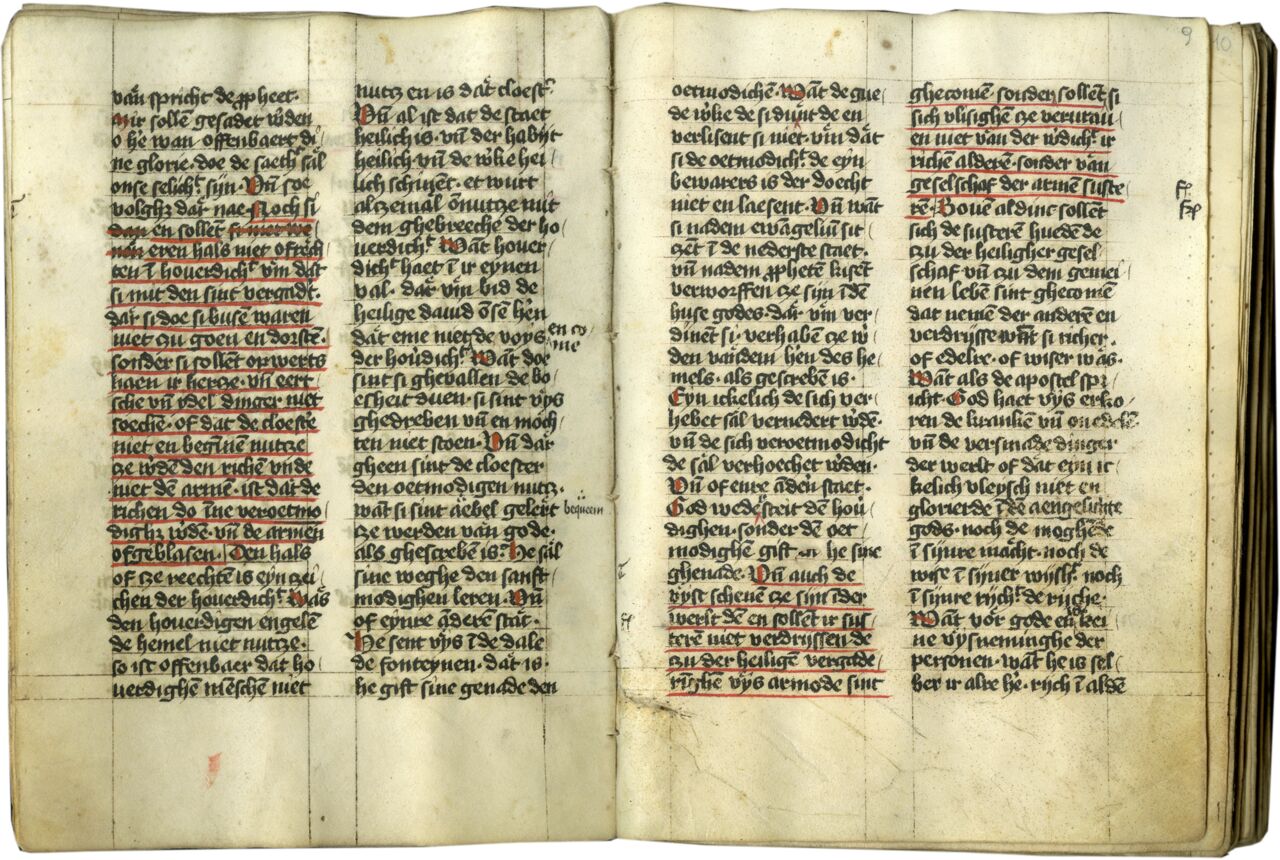 van spricht de ꝓpheet·
Wir sollē gesadet w̄den
o he wan offenbaert di
ne glorie· doe de saech sal
onse selich͛t syn· Vn̄ soe
volghz dar nae Noch si
dan en sollēt si niet we
nōn eren hals niet ofrech
ten ī houerdich͛t v̄m dat
si mit den sint vergadt·
dar si doe si busē waren
niet zu goen en dorstē·
sonder si sollēt opwerts
haen ir hertze· vn̄ eert
sche vn̄ ydel dinger niet
soechē· of dat de cloeste
niet en beginnē nutzze
ze w̄dē den richen vnde
niet dē armē· ist dat de
richen do īne veroetmo
dighz w̄dē· vn̄ de armen
ofgeblasen· Den hals
of ze reechtē is eyn zei
chen der houerdich͛t Was
den houerdigen engelē
de hemel niet nutze·
so ist offenbaer dat ho
uerdighē mēschē niet
nutz en is dat cloest͛
Vn̄ al ist dat de staet
heilich is· vn̄ der habijt
heilich vn̄ de w̄ke hei
lich schinēt· et wurt
alzemal ōnutze mit
dem ghebreeche der ho
uerdich͛t Want houer
dich͛t haet ī ir eynen
val· dar v̄m bid de
heilige dauid ōse hēn
dat eme niet de voys en co
me
der hou͛dich͛t Want doe
sint si gheuallen de bo
esheit duen· si sint vys
ghedreben vn̄ en moch
ten niet stoen· Vn̄ dar
gheen sint de cloester
den oetmodigen nutz·
wāt si sint aebel geleert bequeem
ze werden van gode·
als ghescrebē is· He sal
sine weghe den sanft
modighen leren· Vn̄
of eynre anderē stat·
He sent vys ī de dale
de fonteynen· dat is·
he gift sine genade den
9
10
oetmodichē· Wāt de gue
de w̄ke de si dunt de en
verlisent si niet· v̄m dat
si de oetmodich͛t de eyn
bewarers is der doecht
niet en laesent· Vn̄ wāt
si nadem ewāgeliū sit
zēt ī de nederste staet·
vn̄ nadem ꝓphetē kusēt
verworffen ze sijn ī dē
huse godes· dar v̄m ver
dinēt si· verhabē ze w̄
den van dem hen des he
mels· als gescrebē is·
Eyn ickelich de sich ver
hebet sal vernedert w̄dē·
vn̄ de sich veroetmodicht
de sal verhoechet w̄den·
Vn̄ of enre āden staet·
God wed͛steit den hou͛
dighen· sonder den oet
modighē gift he sine
ghenade· Vn̄ auch de
vyst scheuē ze sijn ī der
werlt dē en sollēt ir sus
terē niet verdrijssen de
zu der heiligē vergade
ringhē vys armode sint
ghecomē· sonder sollēt si
sich vlisighē ze verurau
en niet van der w̄dich͛t ir
richē alderē· sonder van
geselschaf der armē suste
rē· Bouē al dinc sollēt
sich de susterē hueden de
zu der heiligher gesel
schaf vn̄ zu dem gemei
nen lebē sint ghecomē
dat nemē der anderē en
verdrijsse want si richer·
of edelre· of wiser was·
Want als de apostel spr
icht· God haet vys erko
ren de krankē vn̄ onedelē
vn̄ de versmade dinger
der werlt of dat eyn ic
kelich vleysch niet en
glorierde ī de aengesichte
gods· noch de moghēde
ī sijnre macht· noch de
wise ī sijner wijsh͛· noch
ī sijnre rijch͛t de rijche·
Want vor gode en is kei
ne vysneminghe der
personen· wāt he is sel
ber ir alre he͛· rijch ī aldē